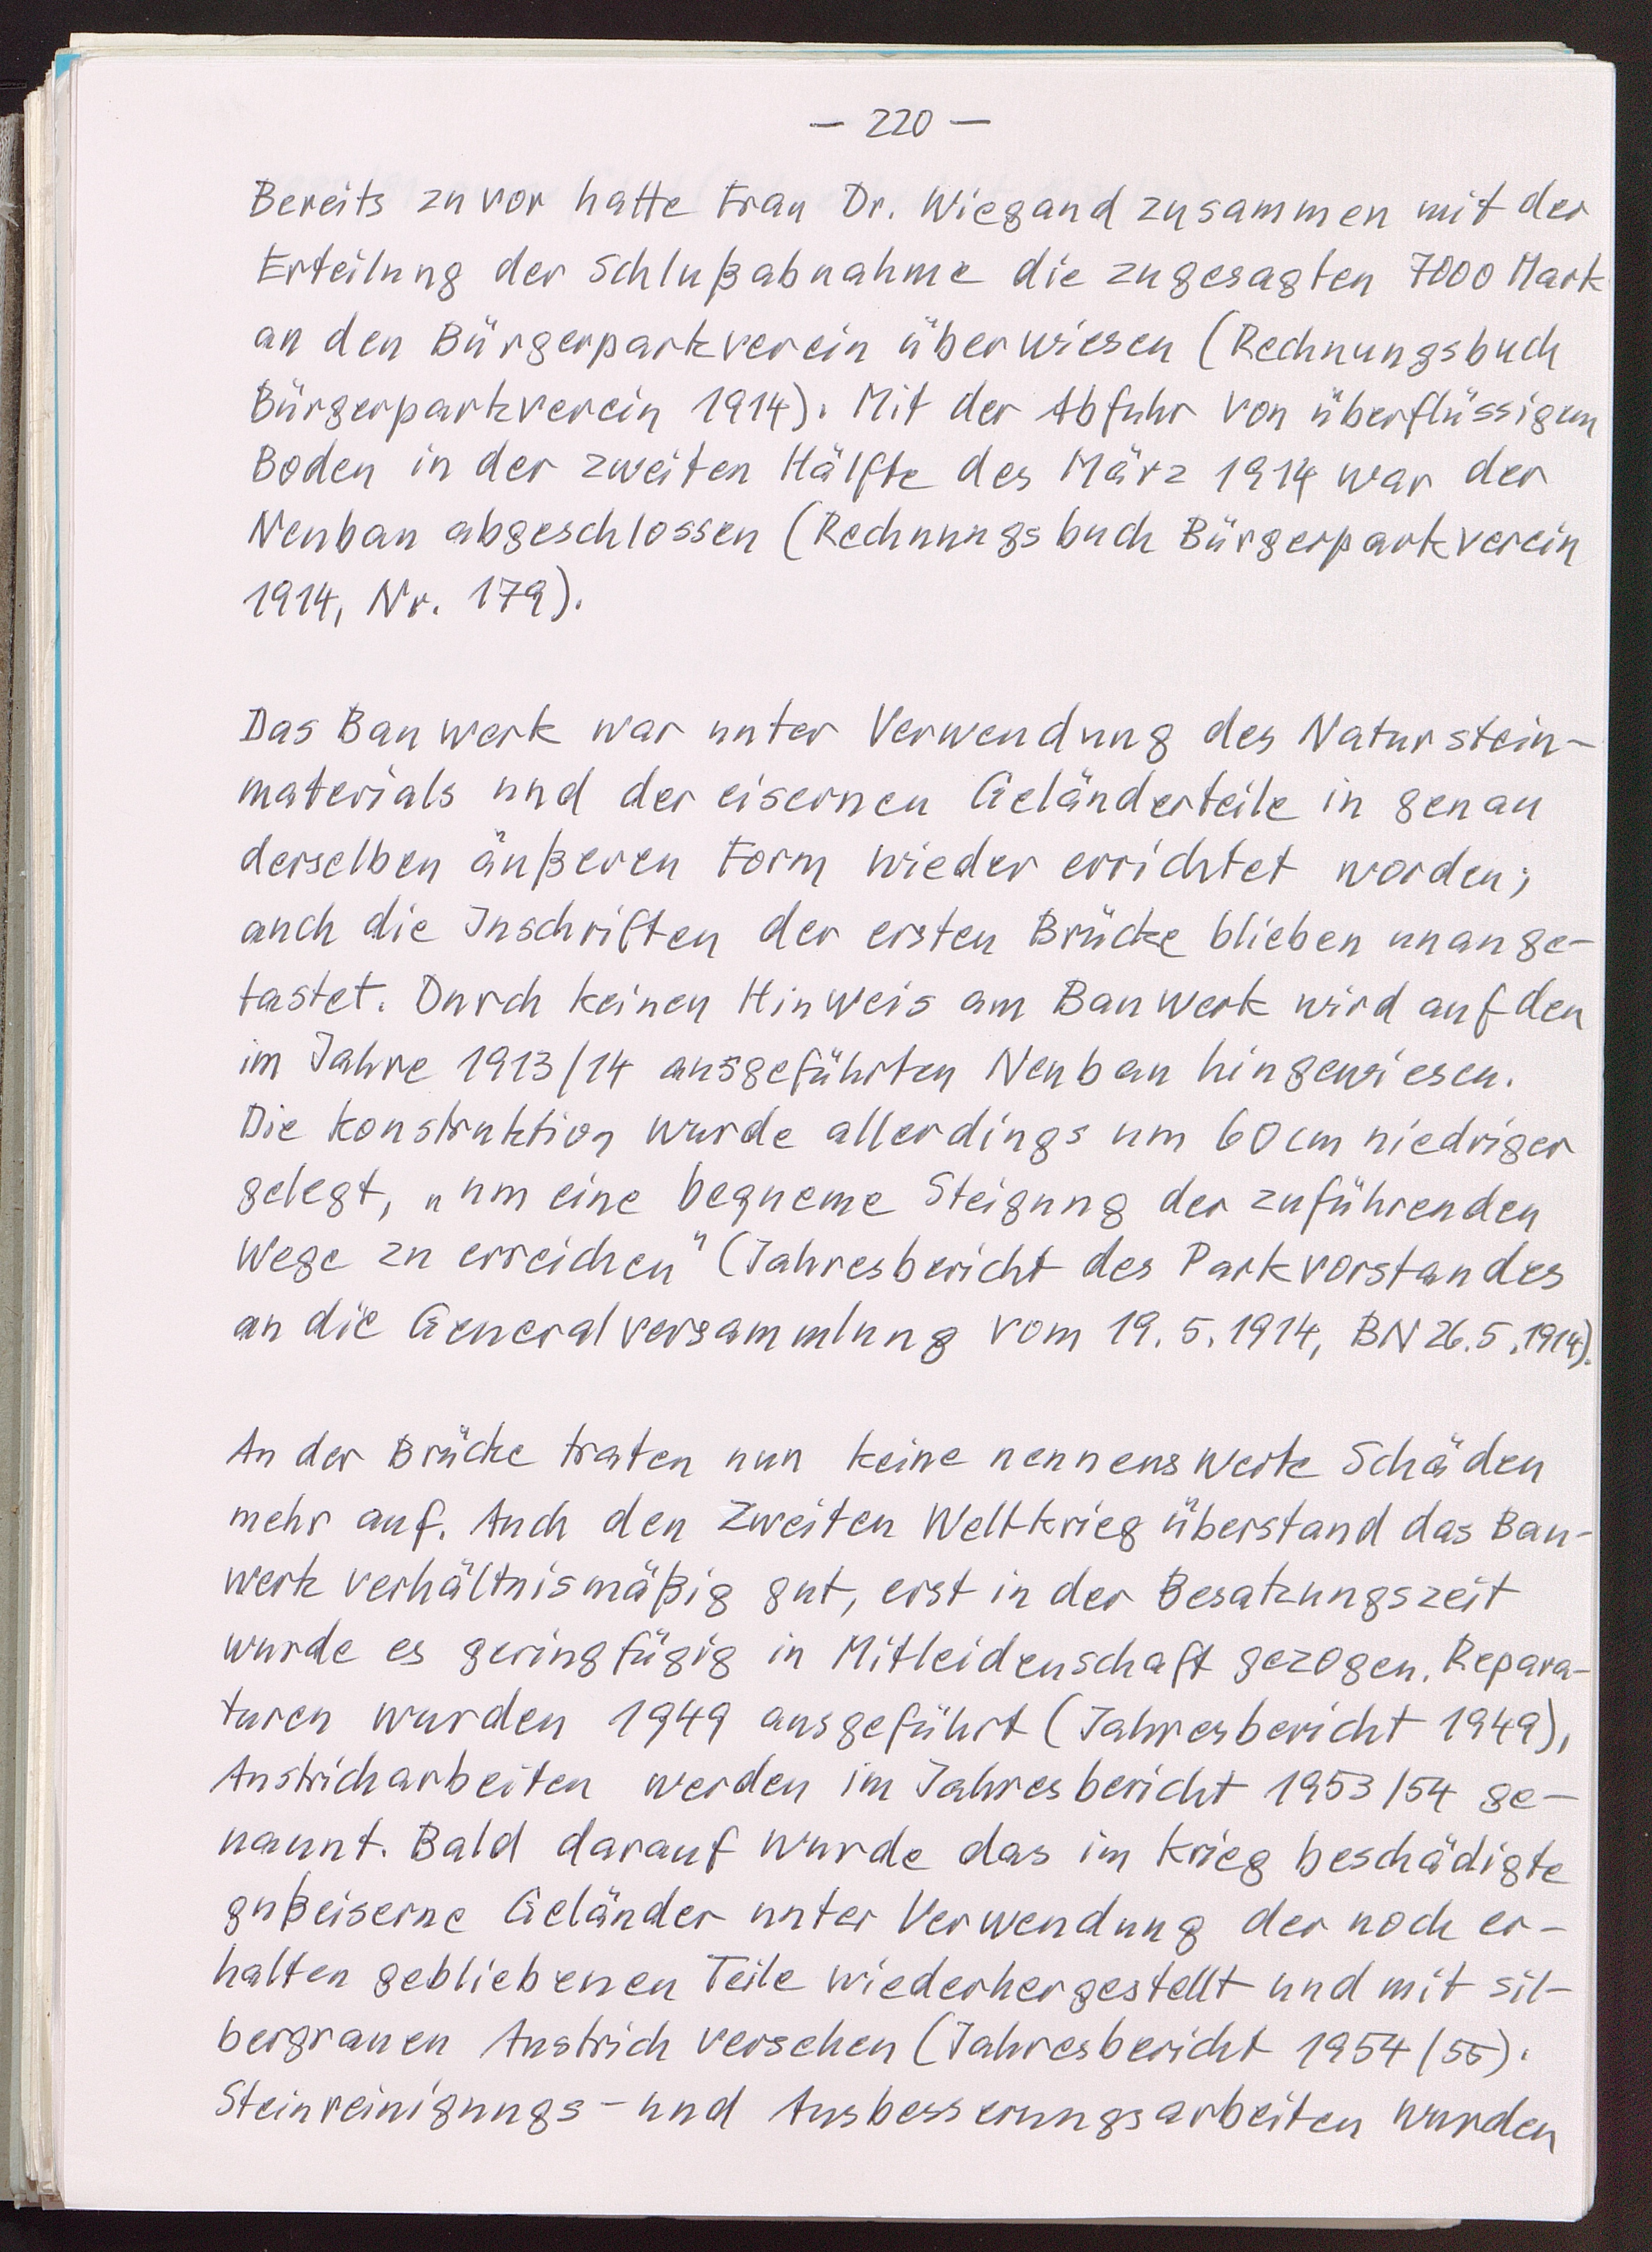 — 220 —
Bereits zuvor hatte Frau Dr. Wiegand zusammen mit der
Erteilung der Schlußabnahme die zugesagten 7000 Mark
an den Bürgerparkverein überwiesen (Rechnungsbuch
Bürgerparkverein 1914). Mit der Abfuhr von überflüssigem
Boden in der zweiten Hälfte des März 1914 war der
Neubau abgeschlossen (Rechnungsbuch Bürgerparkverein
1914, Nr. 179).
Das Bauwerk war unter Verwendung des Naturstein-
materials und der eisernen Geländerteile in genau
derselben äußeren Form wieder errichtet worden;
auch die Inschriften der ersten Brücke blieben unange-
tastet. Durch keinen Hinweis am Bauwerk wird auf den
im Jahre 1913/14 ausgeführten Neubau hingewiesen.
Die Konstruktion wurde allerdings um 60 cm niedriger
gelegt, „um eine bequeme Steigung der zuführenden
Wege zu erreichen" (Jahresbericht des Parkvorstandes
an die Generalversammlung vom 19.5.1914, BN 26.5.1914).
An der Brücke traten nun keine nennenswerte Schäden
mehr auf. Auch den Zweiten Weltkrieg überstand das Bau-
werk verhältnismäßig gut, erst in der Besatzungszeit
wurde es geringfügig in Mitleidenschaft gezogen. Repara-
turen wurden 1949 ausgeführt (Jahresbericht 1949),
Anstricharbeiten werden im Jahresbericht 1953/54 ge-
nannt. Bald darauf wurde das im Krieg beschädigte
gußeiserne Geländer unter Verwendung der noch er-
halten gebliebenen Teile wiederhergestellt und mit sil-
bergrauen Anstrich versehen (Jahresbericht 1954/55).
Steinreinigungs- und Ausbesserungsarbeiten wurden